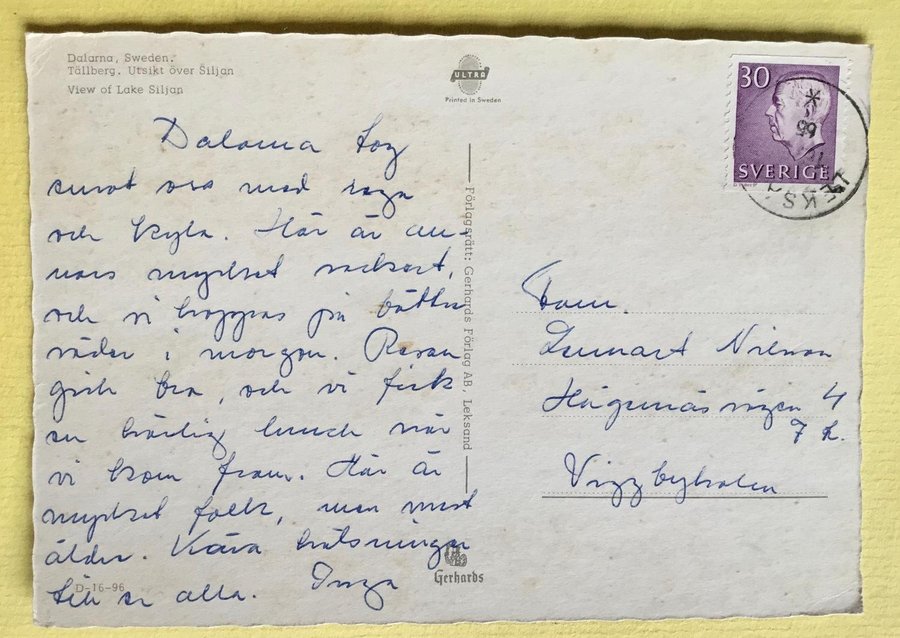 Dalarna, Sweden.
Tällberg. Utsikt över Siljan
View of Lake Siljan
ULTRA
Printed in Sweden
30
SVERIGE
Dalarna tog
emot oss med regn
och kyla. Här är an-
nars mycket vackert,
och vi hoppas på bättre
väder i morgon. Resan
gick bra, och vi fick
en härlig lunch när
vi kom fram. Här är
mycket folk, men mest
äldre. Kära hälsningar
till er alla. Inga
Förlagsrätt: Gerhards Förlag AB, Leksand
Fam
Lennart Nilsson
Hägernäsvägen 4
7 tr.
Viggbyholm
Gerhards
D-16-96